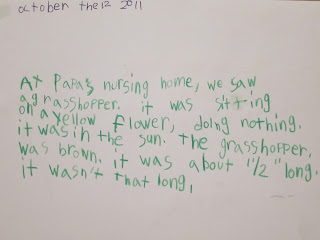 october the 12 2011
At Papa's nursing home, we saw
a grasshopper. it was sitting
on a yellow flower, doing nothing.
it was in the sun. the grasshopper,
was brown. it was about "1/2" long.
it wasn't that long,